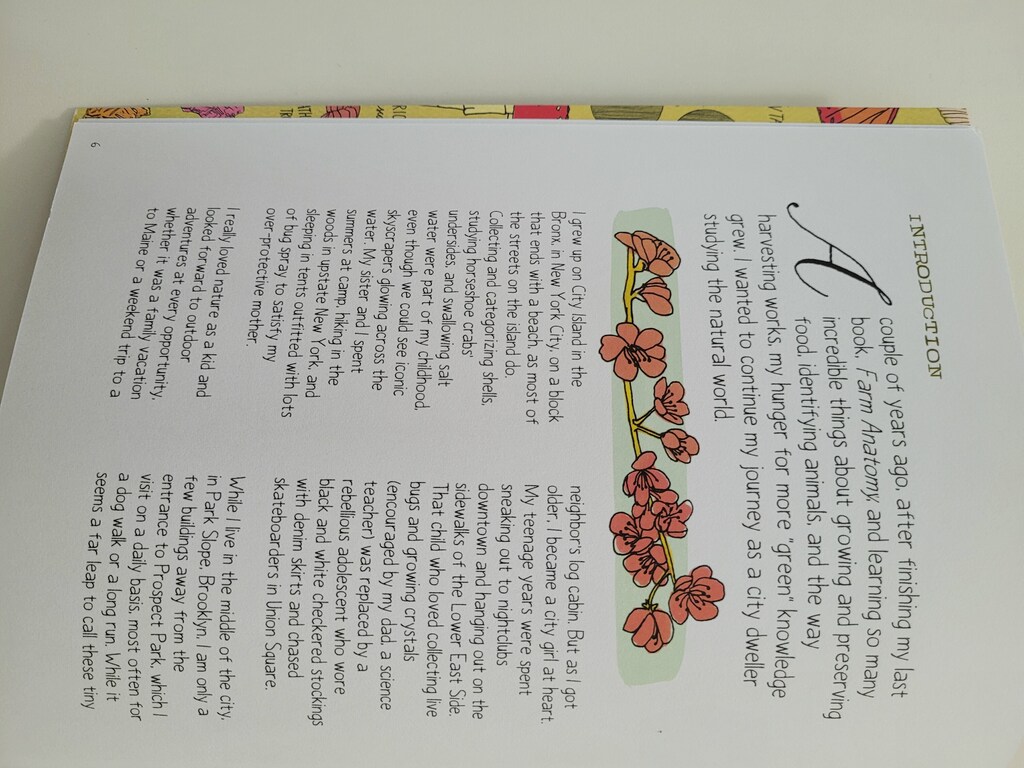 INTRODUCTION
A couple of years ago, after finishing my last
book, Farm Anatomy, and learning so many
incredible things about growing and preserving
food, identifying animals, and the way
harvesting works, my hunger for more "green" knowledge
grew. I wanted to continue my journey as a city dweller
studying the natural world.
I grew up on City Island in the
Bronx, in New York City, on a block
that ends with a beach, as most of
the streets on the island do.
Collecting and categorizing shells,
studying horseshoe crabs'
undersides, and swallowing salt
water were part of my childhood,
even though we could see iconic
skyscrapers glowing across the
water. My sister and I spent
summers at camp, hiking in the
woods in upstate New York, and
sleeping in tents outfitted with lots
of bug spray to satisfy my
over-protective mother.
I really loved nature as a kid and
looked forward to outdoor
adventures at every opportunity,
whether it was a family vacation
to Maine or a weekend trip to a
neighbor's log cabin. But as I got
older, I became a city girl at heart.
My teenage years were spent
sneaking out to nightclubs
downtown and hanging out on the
sidewalks of the Lower East Side.
That child who loved collecting live
bugs and growing crystals
(encouraged by my dad, a science
teacher) was replaced by a
rebellious adolescent who wore
black and white checkered stockings
with denim skirts and chased
skateboarders in Union Square.
While I live in the middle of the city,
in Park Slope, Brooklyn, I am only a
few buildings away from the
entrance to Prospect Park, which I
visit on a daily basis, most often for
a dog walk or a long run. While it
seems a far leap to call these tiny
6